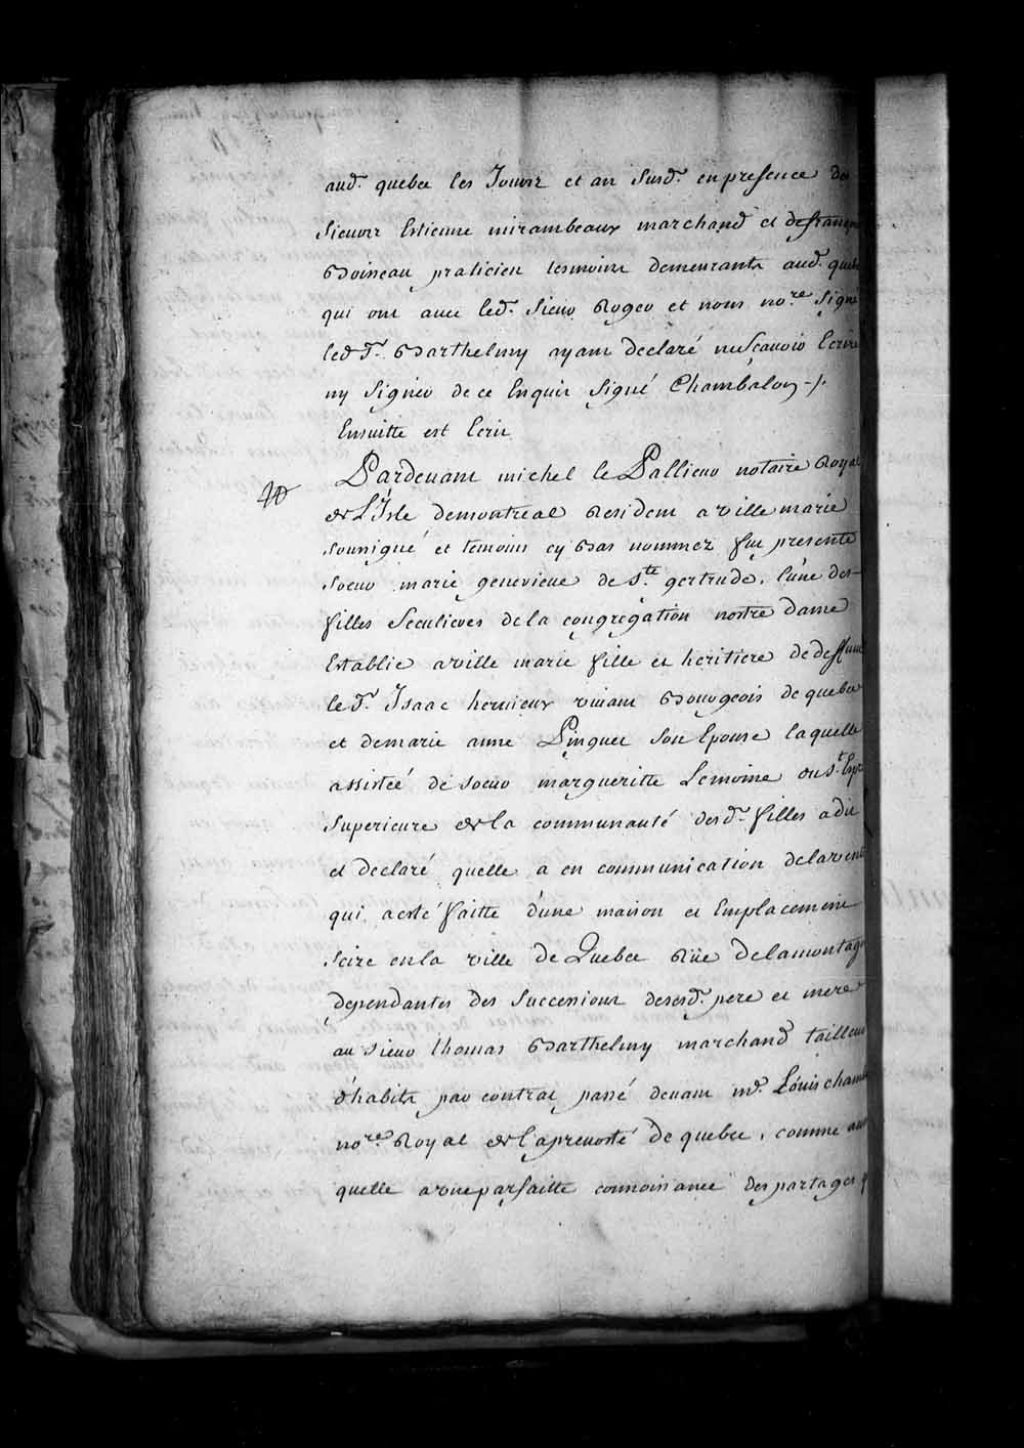 aud.t quebec les Jours et an susd.t en presence des
sieurs Estienne mirambeaux marchand et de françois
Boineau praticien tesmoins demeurants aud.t quebec
qui ont avec led.t sieur Roger et nous no.re signé
led.t S.r Barthelmy ayant declaré ne sçavoir Ecrire
ny signer de ce Enquis signé Chambalon ./.
Ensuitte est Ecrit
Pardevant michel le Pallieur notaire Royal
de L'Isle demontreal Resident a ville marie
sousigné et temoins cy bas nommez fut presente
soeur marie genevieve de s.te gertrude, l'une des
filles seculieres de la congregation nostre dame
Establie a ville marie fille et heritiere de deffunt
le S.r Isaac hervieux vivant Bourgeois de quebec
et de marie anne Pinguet son Epouse laquelle
assistée de soeur margueritte Lemoine du s.t Esp
superieure de la communauté desd.t filles a dit
et declaré quelle a en communication de la vente
qui a esté faitte d'une maison et Emplacement
scize en la ville de Quebec Rüe de la montagne
dependantes des successions desesd.t pere et mere
au sieur thomas Barthelmy marchand tailleur
d'habits par contrat passé devant m.e Louis cham
no.re Royal de la prevosté de quebec, comme au
quelle a vne parfaitte connoissance des partages